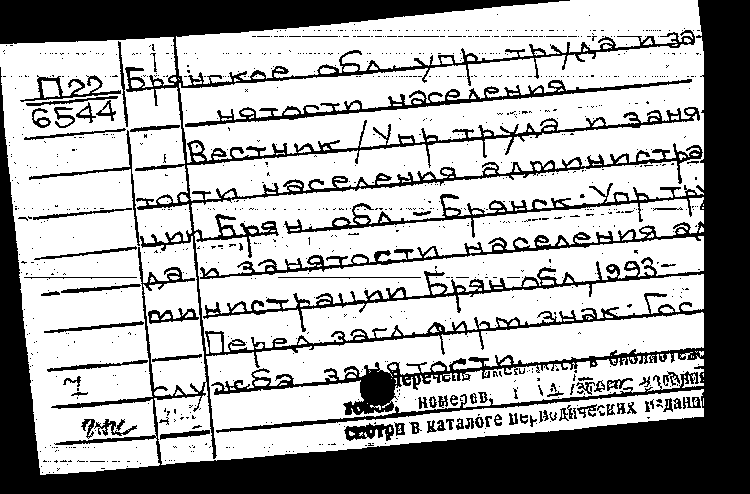 П22
6544
Брянское обл. упр. труда и за-
нятости населения.
Вестник / Упр труда и заня-
тости населения администра
ции Брян. обл. - Брянск: Упр тру
да и занятости населения ад
министрации Брян обл, 1993-
Перед загл. фирм. знак: Гос
служба занятости.
1
перечень имеющихся в библиотеке
томов, номеров,
смотри в каталоге периодических издани